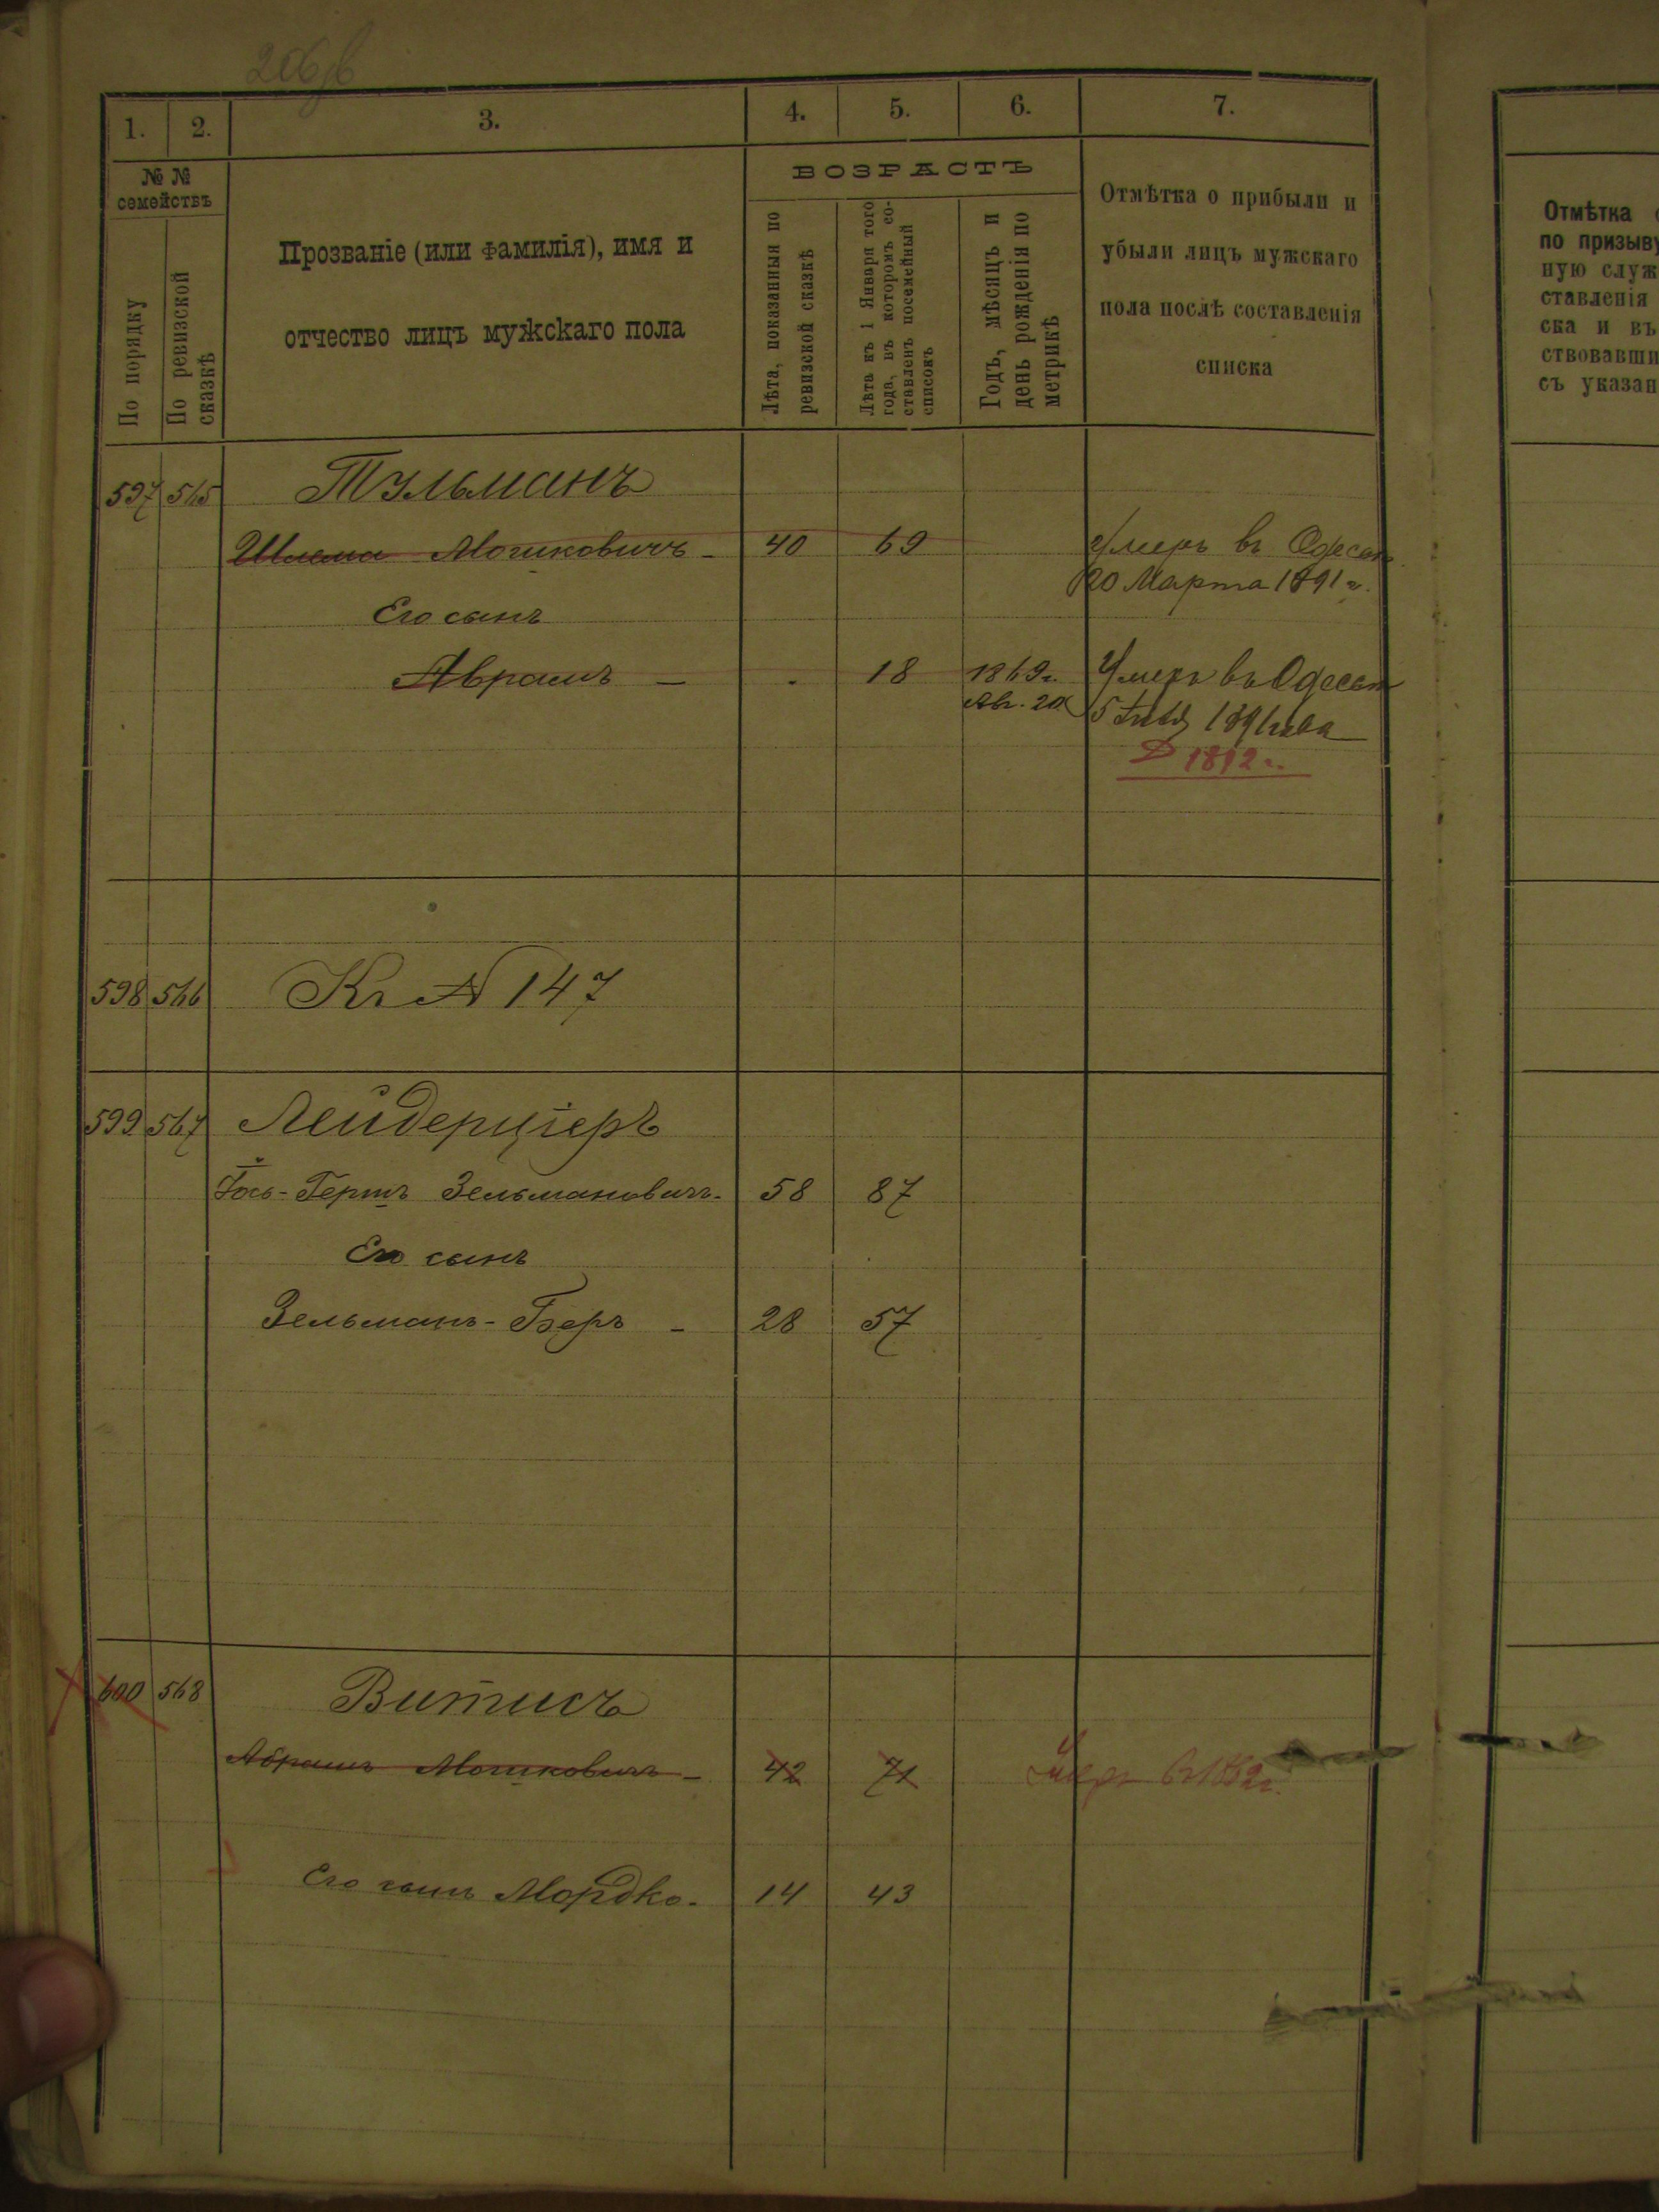 206об
1. 2. 3. 4. 5. 6. 7.
№ №
семействъ
По порядку
По ревизской
сказкѣ
Прозваніе (или фамилія), имя и
отчество лицъ мужскаго пола
ВОЗРАСТЪ
Лѣта, показанныя по
ревизской сказкѣ
Лѣта къ 1 Января того
года, въ которомъ со-
ставленъ посемейный
списокъ
Годъ, мѣсяцъ и
день рожденія по
метрикѣ
Отмѣтка о прибыли и
убыли лицъ мужскаго
пола послѣ составленія
списка
Отмѣтка
по призыву
ную служ
ставленія
ска и въ
ствовавши
съ указан
597 565 Тульманъ
Шлема Мошковичъ - 40 69 Умеръ въ Одессѣ
20 Марта 1891 г.
Его сынъ
Аврамъ - . 18 1869г. Умеръ въ Одессѣ
Авг. 20 5 1891 года
1892 г.
598 566 Къ № 147
599 567 Лейдерцгеръ
Гершъ Зельмановичъ - 58 87
Его сынъ
Зельманъ-Беръ - 28 57
600 568 Витисъ
Абрамъ Мошковичъ - 42 71 Умеръ въ
Его сынъ Мордко - 14 43